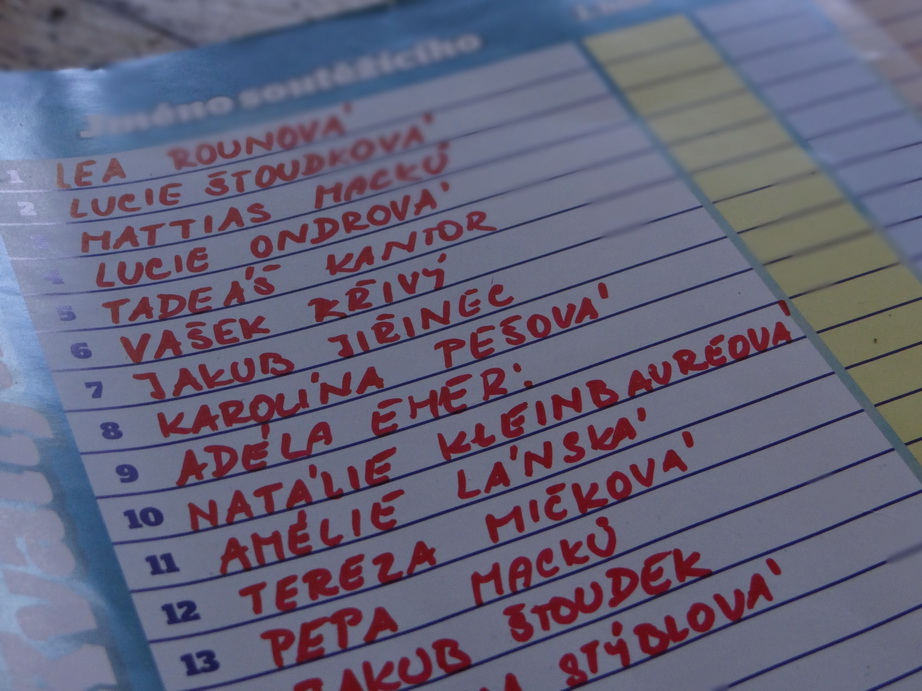 Jméno soutěžícího
1 LEA ROUNOVÁ
2 LUCIE ŠTOUDKOVÁ
3 MATTIAS MACKŮ
4 LUCIE ONDROVÁ
5 TADEÁŠ KANTOR
6 VAŠEK KŘIVÝ
7 JAKUB JIŘINEC
8 KAROLÍNA PEŠOVÁ
9 ADÉLA EMER
10 NATÁLIE KLEINBAUREOVÁ
11 AMÉLIE LÁNSKÁ
12 TEREZA MIČKOVÁ
13 PEPA MACKŮ
JAKUB ŠTOUDEK
STÝBLOVÁ